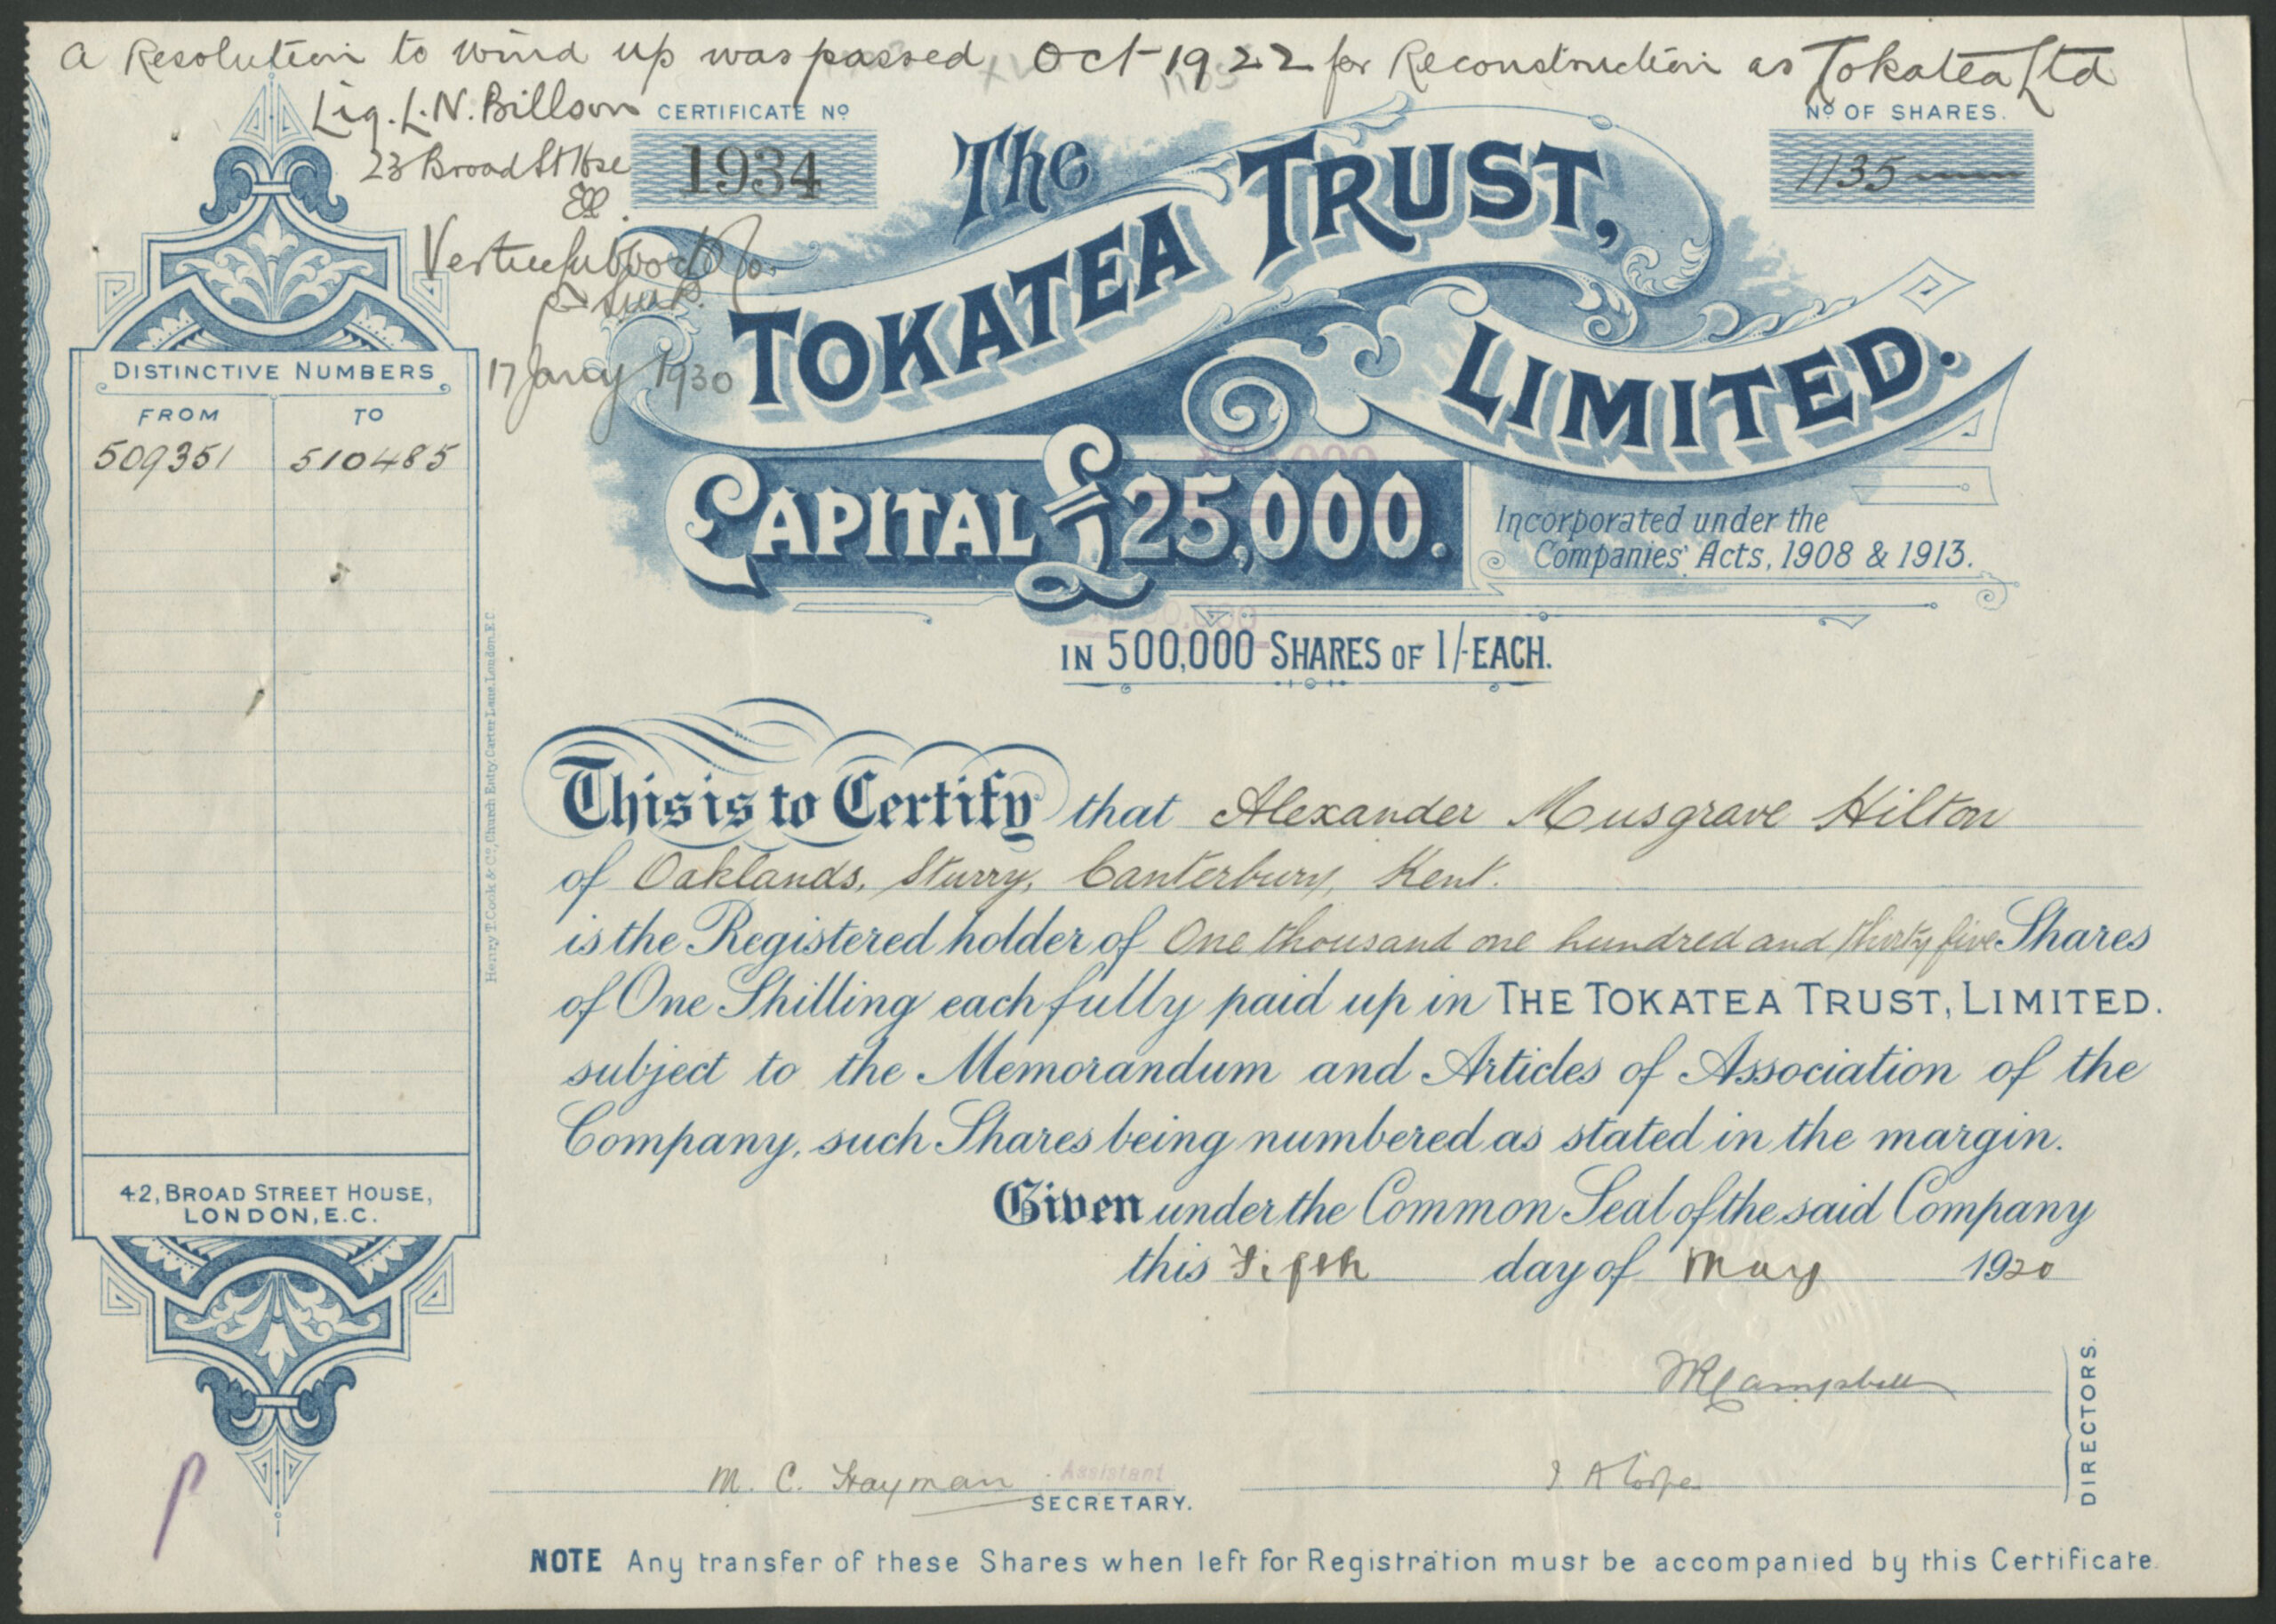 A Resolution to wind up was passed Oct 1922 for Reconstruction as Tokatea Ltd
Liq. L. N. Billson
23 Broad St Hse
EC
17 Jany 1930
CERTIFICATE Nº
1934
Nº OF SHARES.
1135
The
TOKATEA TRUST,
LIMITED.
CAPITAL £25,000.
Incorporated under the
Companies' Acts, 1908 & 1913.
IN 500,000 SHARES OF 1/- EACH.
DISTINCTIVE NUMBERS
FROM TO
509351 510485
Henry T. Cook & Cº, Church Entry, Carter Lane, London, E.C
42, BROAD STREET HOUSE,
LONDON, E.C.
This is to Certify that Alexander Musgrave Hilton
of Oaklands, Sturry, Canterbury, Kent.
is the Registered holder of One thousand one hundred and thirty five Shares
of One Shilling each fully paid up in THE TOKATEA TRUST, LIMITED.
subject to the Memorandum and Articles of Association of the
Company, such Shares being numbered as stated in the margin.
Given under the Common Seal of the said Company
this Fifth day of May 1920
Campbell
DIRECTORS.
M. C. Hayman Assistant
SECRETARY.
NOTE Any transfer of these Shares when left for Registration must be accompanied by this Certificate.